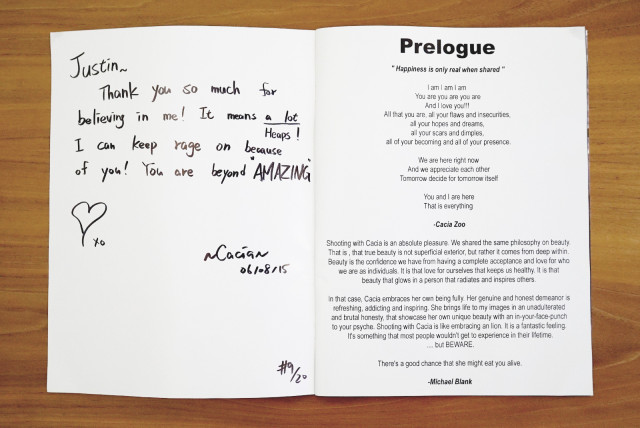 Justin~
Thank you so much for
believing in me! It means a lot
Heaps!
I can keep rage on because
of you! You are beyond "AMAZING"
xo
~Cacia~
06/08/15
#9/20
Prelogue
" Happiness is only real when shared "
I am I am I am
You are you are you are
And I love you!!!
All that you are, all your flaws and insecurities,
all your hopes and dreams,
all your scars and dimples,
all of your becoming and all of your presence.
We are here right now
And we appreciate each other
Tomorrow decide for tomorrow itself
You and I are here
That is everything
-Cacia Zoo
Shooting with Cacia is an absolute pleasure. We shared the same philosophy on beauty.
That is , that true beauty is not superficial exterior, but rather it comes from deep within.
Beauty is the confidence we have from having a complete acceptance and love for who
we are as individuals. It is that love for ourselves that keeps us healthy. It is that
beauty that glows in a person that radiates and inspires others.
In that case, Cacia embraces her own being fully. Her genuine and honest demeanor is
refreshing, addicting and inspiring. She brings life to my images in an unadulterated
and brutal honesty, that showcase her own unique beauty with an in-your-face-punch
to your psyche. Shooting with Cacia is like embracing an lion. It is a fantastic feeling.
It's something that most people wouldn't get to experience in their lifetime.
.... but BEWARE.
There's a good chance that she might eat you alive.
-Michael Blank